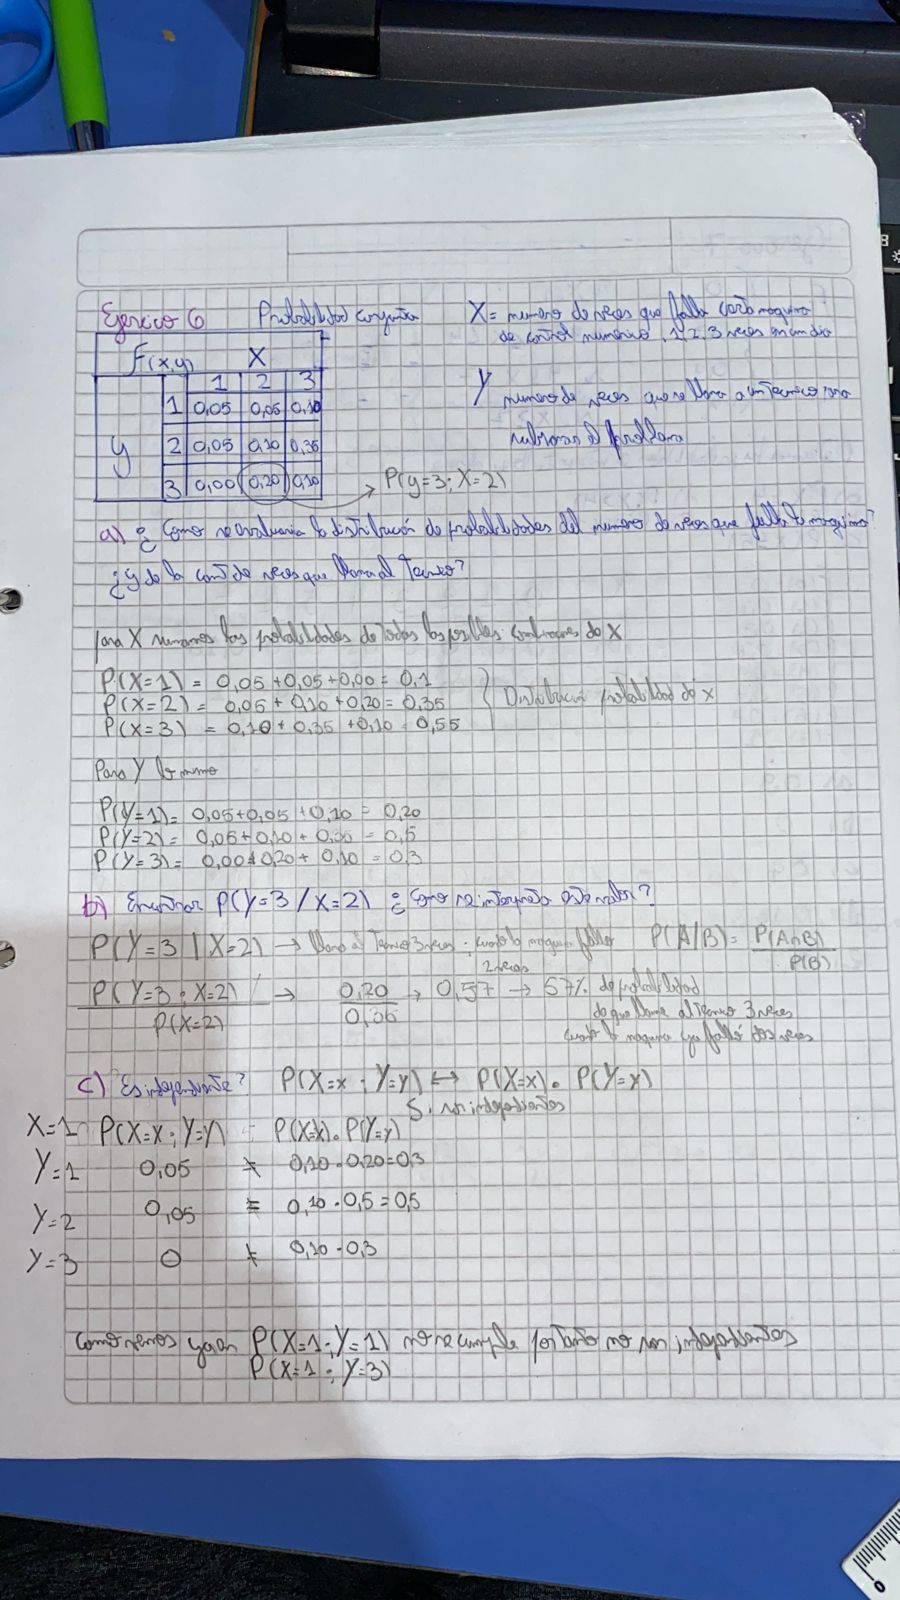 Ejercicio 6 Probabilidad conjunta
X= numero de veces que falla cierta maquina
de control numerico, 1, 2, 3 veces en un dia
F(x,y) X
1 2 3
1 0,05 0,05 0,10
y 2 0,05 0,10 0,35
3 0,00 0,20 0,10
Y numero de veces que se llama a un tecnico para
el problema
P(y=3; X=2)
a) ¿ Como se evaluaria la distribución de probabilidades del numero de veces que falla la maquina?
¿y de la cant de veces que llama al tecnico?
para X sumamos las probabilidades de todas las posibles de X
P(X=1) = 0,05 +0,05 +0,00 = 0,1
P(X=2) = 0,05 + 0,10 +0,20 = 0,35
P(X=3) = 0,10 + 0,35 +0,10 = 0,55
Distribucion probabilidad de x
Para Y lo mismo
P(Y=1)= 0,05+0,05 +0,10 = 0,20
P(Y=2)= 0,05+0,10 + 0,35 = 0,5
P(Y=3)= 0,00+0,20+ 0,10 = 0,3
b) Encontrar P(Y=3 / X=2) ¿ Como se interpreta este valor?
P(Y=3 | X=2) → llama al Tecnico 3 veces cuando la maquina falla
2 veces
P(A/B) = P(A∩B)
P(B)
P(Y=3 ; X=2) → 0,20 → 0,57 → 57% de probabilidad
P(X=2) 0,35
de que llame al Tecnico 3 veces
cuando la maquina ya falló dos veces
c) Es independiente? P(X=x ; Y=y) ↔ P(X=x) . P(Y=y)
Si son independientes
X=1 P(X=x ; Y=y) = P(X=x) . P(Y=y)
Y=1 0,05 ≠ 0,10 · 0,20 = 0,3
Y=2 0,05 = 0,10 · 0,5 = 0,5
Y=3 0 ≠ 0,10 · 0,3
como vemos ya en P(X=1 ; Y=1) no se cumple por tanto no son independientes
P(X=1 ; Y=3)